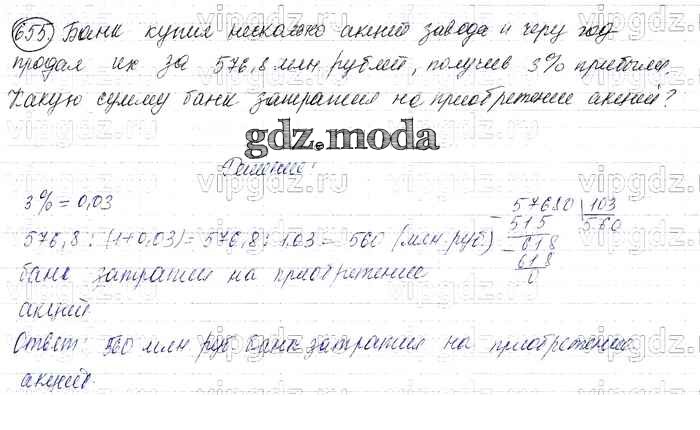 655 Банк купил несколько акций завода и через год
продал их за 576,8 млн рублей, получив 3% прибыли.
Какую сумму банк затратил на приобретение акций?
gdz.moda
Решение:
3% = 0,03
576,8 : (1+0,03) = 576,8 : 1.03 = 560 (млн. руб)
банк затратил на приобретение
акций
57680 103
- 515 560
- 618
618
0
Ответ: 560 млн руб. банк затратил на приобретение
акций.
vipgdz.com